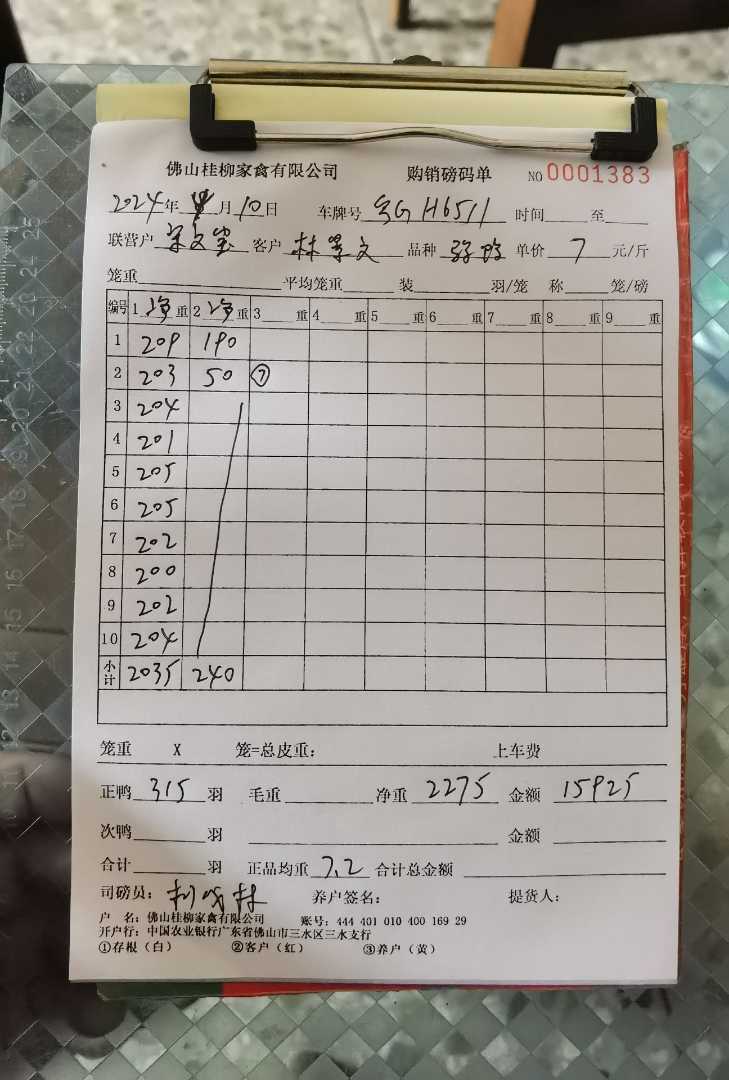 佛山桂柳家禽有限公司 购销磅码单 NO 0001383
2024年 月10日 车牌号 GH6511 时间 至
联营户 梁文 客户 林 文 品种 鸭 单价 7 元/斤
笼重 平均笼重 装 羽/笼 称 笼/磅
编号 1 净重 2 净重 3 重 4 重 5 重 6 重 7 重 8 重 9 重
1 209 190
2 203 50 ⑦
3 204
4 201
5 205
6 205
7 202
8 200
9 202
10 204
小计 2035 240
笼重 X 笼=总皮重: 上车费
正鸭 315 羽 毛重 净重 2275 金额 15925
次鸭 羽 金额
合计 羽 正品均重 7.2 合计总金额
司磅员: 林 养户签名: 提货人:
户 名: 佛山桂柳家禽有限公司 账号: 444 401 010 400 169 29
开户行: 中国农业银行广东省佛山市三水区三水支行
①存根(白) ②客户(红) ③养户(黄)